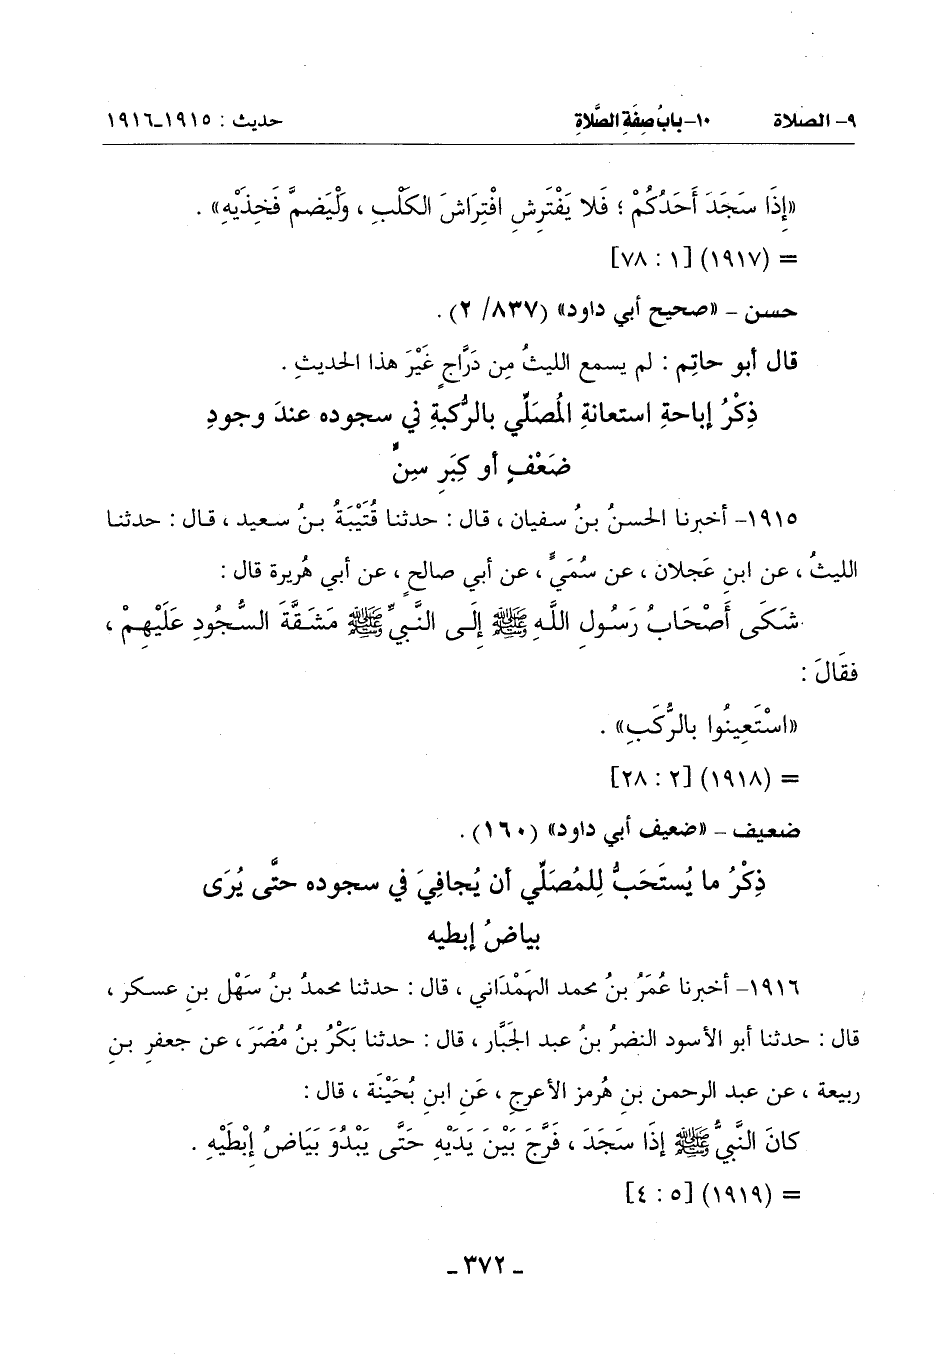 ٩- الصلاة ١٠-بابُ صِفَةِ الصَّلَاةِ حديث : ١٩١٥-١٩١٦
«إِذَا سَجَدَ أَحَدُكُمْ ؛ فَلا يَفْتَرِشِ افْتِرَاشَ الكَلْبِ ، ولْيَضمَّ فَخِذَيْهِ» .
= (١٩١٧) [١ : ٧٨]
حسن - «صحيح أبي داود» (٨٣٧/ ٢) .
قال أبو حاتِم : لم يسمع الليثُ مِن دَرَّاجٍ غَيْرَ هذا الحديثِ .
ذِكْرُ إباحةِ استعانةِ المُصَلِّي بالرُّكبةِ في سجوده عندَ وجودِ
ضَعْفٍ أو كِبَرِ سِنٍّ
١٩١٥- أخبرنا الحسنُ بنُ سفيان ، قال : حدثنا قُتَيْبَةُ بنُ سعيد ، قال : حدثنا
الليثُ ، عن ابنِ عَجلان ، عن سُمَيٍّ ، عن أبي صالحٍ ، عن أبي هُريرة قال :
شَكَى أَصْحَابُ رَسُولِ اللَّهِ ﷺ إِلَى النَّبِيِّ ﷺ مَشَقَّةَ السُّجُودِ عَلَيْهِمْ ،
فقَالَ :
«اسْتَعِينُوا بالرُّكَبِ» .
= (١٩١٨) [٢ : ٢٨]
ضعيف - «ضعيف أبي داود» (١٦٠) .
ذِكْرُ ما يُستَحَبُّ لِلمُصَلِّي أن يُجافِيَ في سجوده حتَّى يُرَى
بياضُ إبطيه
١٩١٦- أخبرنا عُمَرُ بنُ محمد الهَمْدَاني ، قال : حدثنا محمدُ بنُ سَهْلِ بنِ عسكر ،
قال : حدثنا أبو الأسود النضرُ بنُ عبد الجَبَّار ، قال : حدثنا بَكْرُ بنُ مُضَرَ ، عن جعفرِ بنِ
ربيعة ، عن عبد الرحمن بنِ هُرمز الأعرجِ ، عَنِ ابنِ بُحَيْنَة ، قال :
كانَ النَّبِيُّ ﷺ إذَا سَجَدَ ، فَرَّجَ بَيْنَ يَدَيْهِ حَتَّى يَبْدُوَ بَيَاضُ إبْطَيْهِ .
= (١٩١٩) [٥ : ٤]
- ٣٧٢ -